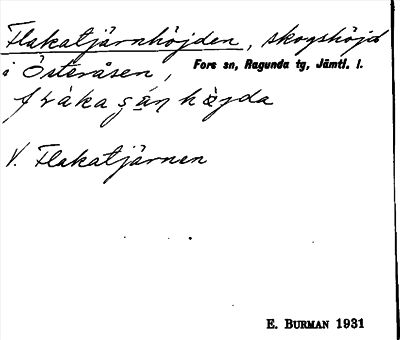 Flakatjärnhöjden, skogshöjd
i Österåsen, Fors sn, Ragunda tg, Jämtl. l.
V. Flakatjärnen
E. BURMAN 1931